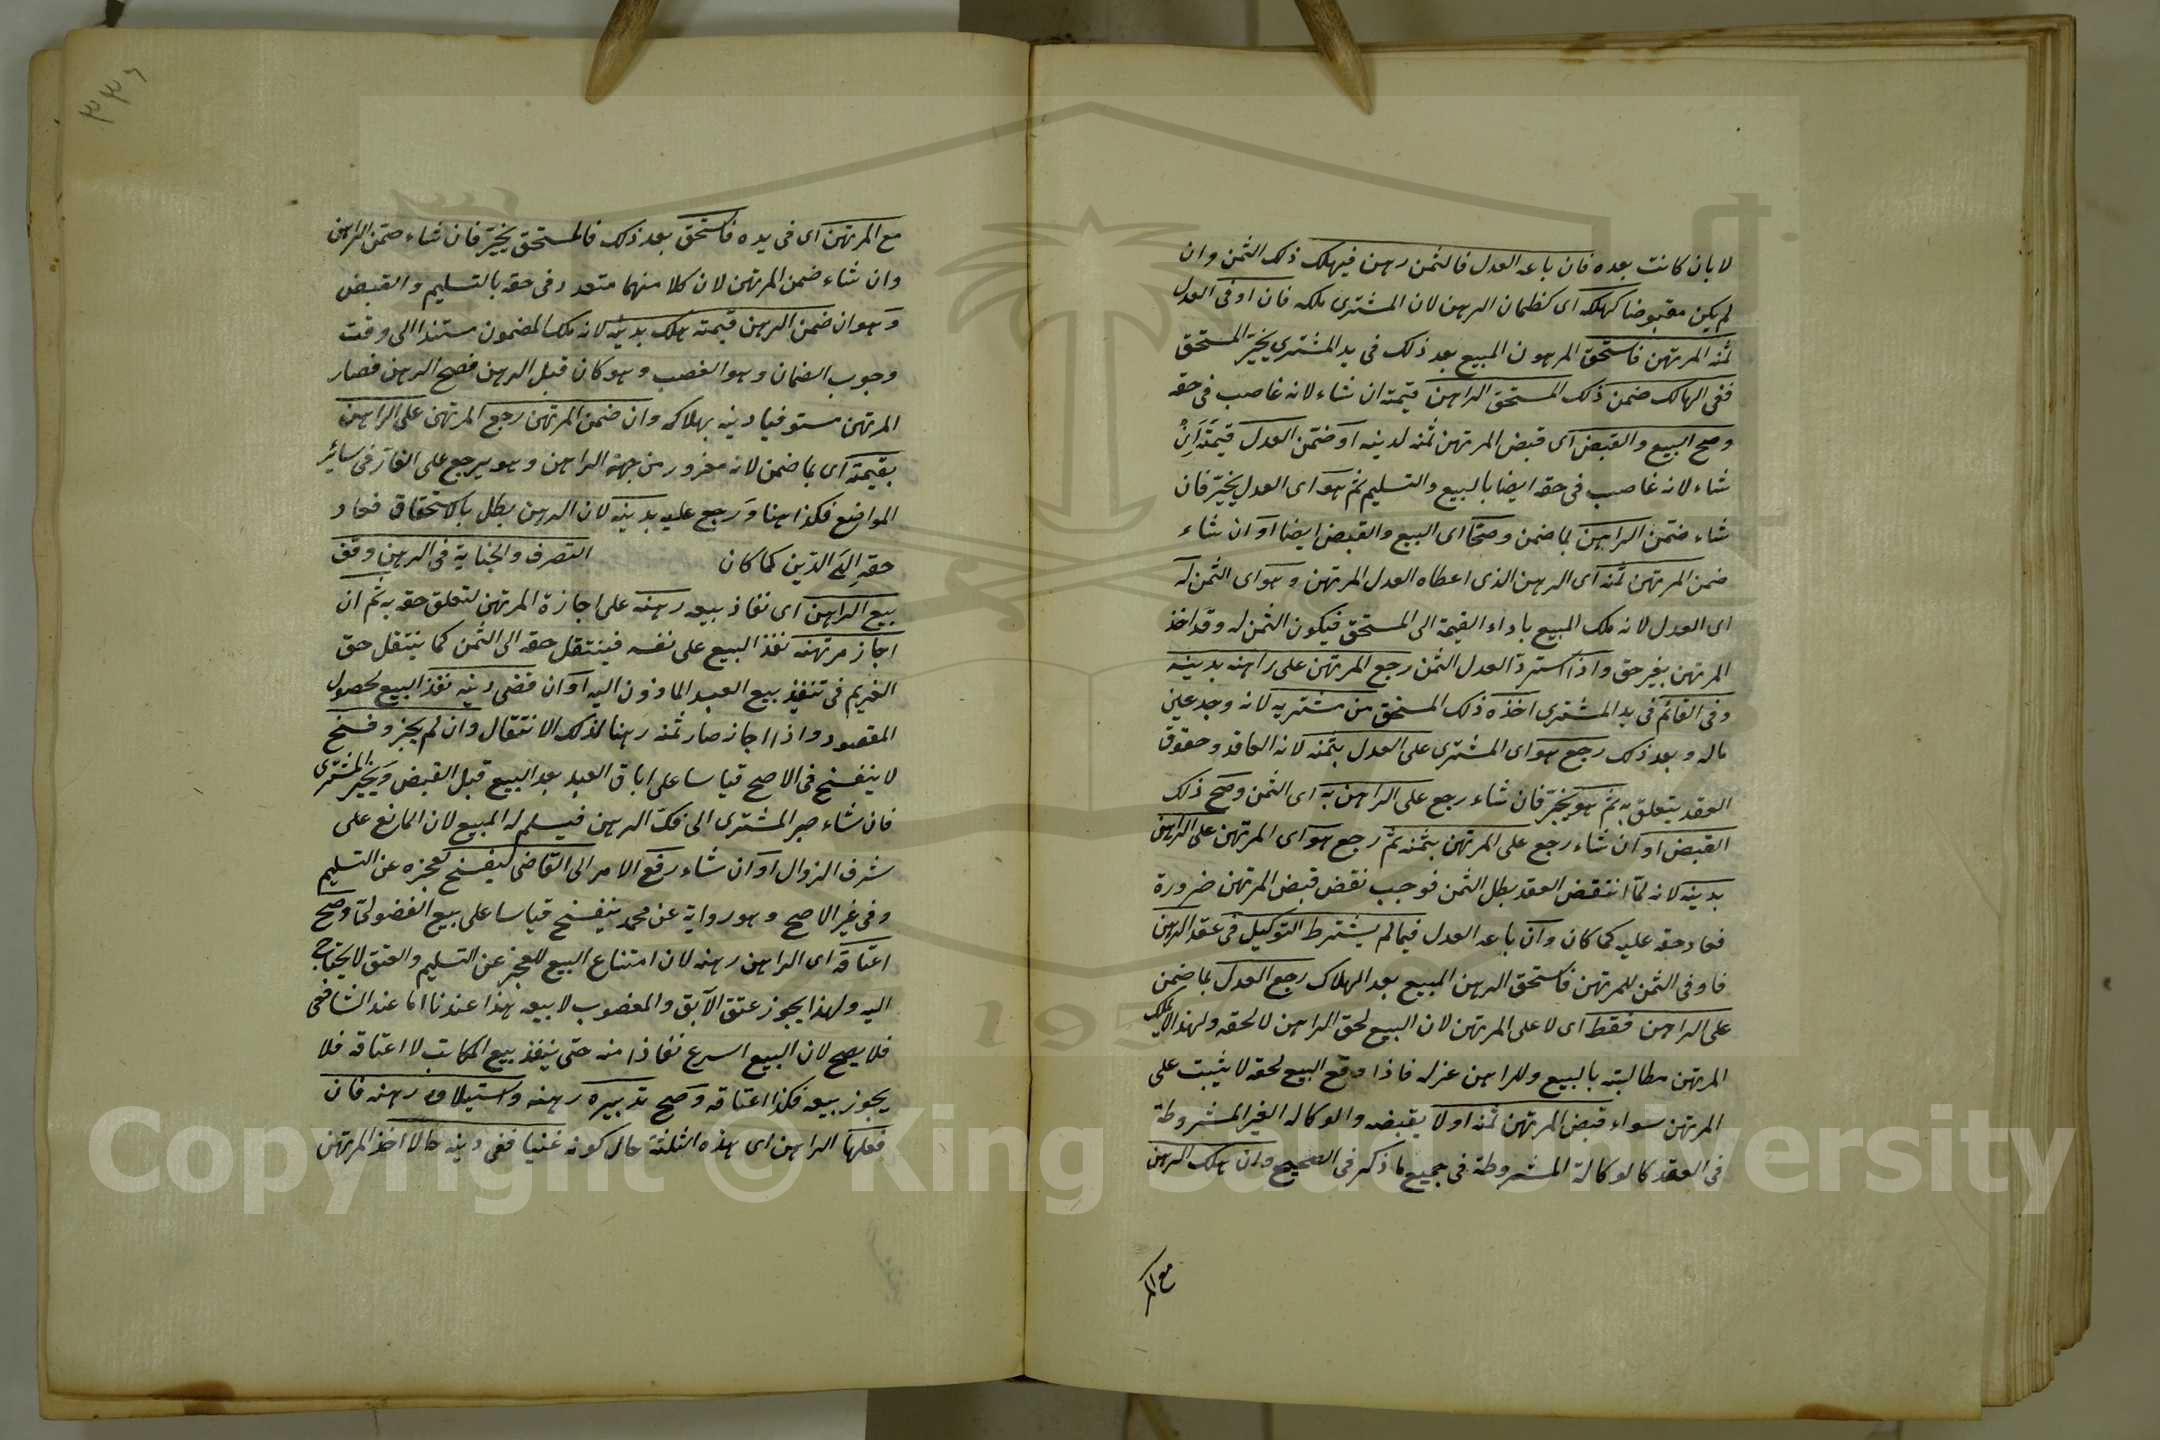 لا بان كانت بعده فان باعه العدل فالثمن رهن فيهلك ذلك الثمن وان
لم يكن مقبوضا كهلكه اى كضمان الرهن لان المشترى ملكه فان اوفى العدل
ثمنه المرتهن فاستحق المرهون المبيع بعد ذلك فى يد المشترى يخير المستحق
ففى الهالك ضمن ذلك المستحق الراهن قيمته ان شاء لانه غاصب فى حقه
وصح البيع والقبض اى قبض المرتهن ثمنه لدينه او ضمّن العدل قيمته ان
شاء لانه غاصب فى حقه ايضا بالبيع والتسليم ثم هو اى العدل يخير فان
شاء ضمّن الراهن لما ضمن وصحا اى البيع والقبض ايضا او ان شاء
ضمن المرتهن ثمنه اى الرهن الذى اعطاه العدل المرتهن وهو اى الثمن له
اى العدل لانه ملك المبيع باداء القيمة الى المستحق فيكون الثمن له وقد اخذ
المرتهن بغير حق واذا استردّ العدل الثمن رجع المرتهن على راهنه بدينه
وفى القائم فى يد المشترى اخذه ذلك المستحق من مشتريه لانه وجد عين
ماله وبعد ذلك رجع هو اى المشترى على العدل بثمنه لانه العاقد وحقوق
العقد يتعلق به ثم هو يخير فان شاء رجع على الراهن به اى الثمن وصح ذلك
القبض او ان شاء رجع على المرتهن بثمنه ثم رجع هو اى المرتهن على الراهن
بدينه لانه لما انتقض العقد بطل الثمن فوجب نقض قبض المرتهن ضرورة
فعاد حقه عليه كما كان وان باعه العدل فيما لم يشترط التوكيل فى عقد الرهن
فاوفى الثمن للمرتهن فاستحق الرهن المبيع بعد الهلاك رجع العدل بما ضمن
على الراهن فقط اى لا على المرتهن لان البيع لحق الراهن لا لحقه ولهذا لا يملك
المرتهن مطالبته بالبيع وللراهن عزله فاذا وقع البيع لحقه لا يثبت على
المرتهن سواء قبض المرتهن ثمنه او لا يقبضه والوكالة الغير المشروطة
فى العقد كالوكالة المشروطة فى جميع ما ذكر فى الصحيح وان هلك الرهن
مع المر
٣٣٦
مع المرتهن اى فى يده فاستحق بعد ذلك فالمستحق يخيّر فان شاء ضمّن الراهن
وان شاء ضمن المرتهن لان كلا منهما متعد فى حقه بالتسليم والقبض
وهو ان ضمن الراهن قيمته هلك بدينه لانه ملك المضمون مستندا الى وقت
وجوب الضمان وهو الغصب وهو كان قبل الرهن فصح الرهن فصار
المرتهن مستوفيا دينه بهلاكه وان ضمن المرتهن رجع المرتهن على الراهن
بقيمته اى بما ضمن لانه مغرور من جهة الراهن وهو يرجع على الغار فى سائر
المواضع فكذا هنا ورجع عليه بدينه لان الرهن بطل بالاستحقاق فعاد
حقه الى الدين كما كان التصرف والجناية فى الرهن وقف
بيع الراهن اى نفاذ بيعه رهنه على اجازة المرتهن لتعلق حقه به ثم ان
اجاز مرتهنه نفذ البيع على نفسه فينتقل حقه الى الثمن كما ينتقل حق
الغريم فى تنفيذ بيع العبد المأذون اليه او ان قضى دينه نفذ البيع لحصول
المقصود واذا اجاز صار ثمنه رهنا لذلك الانتقال وان لم يجز وفسخ
لا ينفسخ فى الاصح قياسا على اباق العبد بعد البيع قبل القبض ويخير المشترى
فان شاء صبر المشترى الى فك الرهن فيسلم له المبيع لان المانع على
شرف الزوال او ان شاء رفع الامر الى القاضى ليفسخ لعجزه عن التسليم
وفى غير الاصح وهو رواية عن محمد ينفسخ قياسا على بيع الفضولى وصح
اعتاقه اى الراهن رهنه لان امتناع البيع للعجز عن التسليم والعتق لا يحتاج
اليه ولهذا يجوز عتق الآبق والمغصوب لا بيعه هذا عندنا اما عند الشافعى
فلا يصح لان البيع اسرع نفاذا منه حتى ينفذ بيع المكاتب لا اعتاقه فلا
يجوز بيعه فكذا اعتاقه وصح تدبيره رهنه واستيلاده رهنه فان
فعلها الراهن اى هذه الثلثة حال كونه غنيا ففى دينه حالا اخذ المرتهن
Copyright © King Saud University